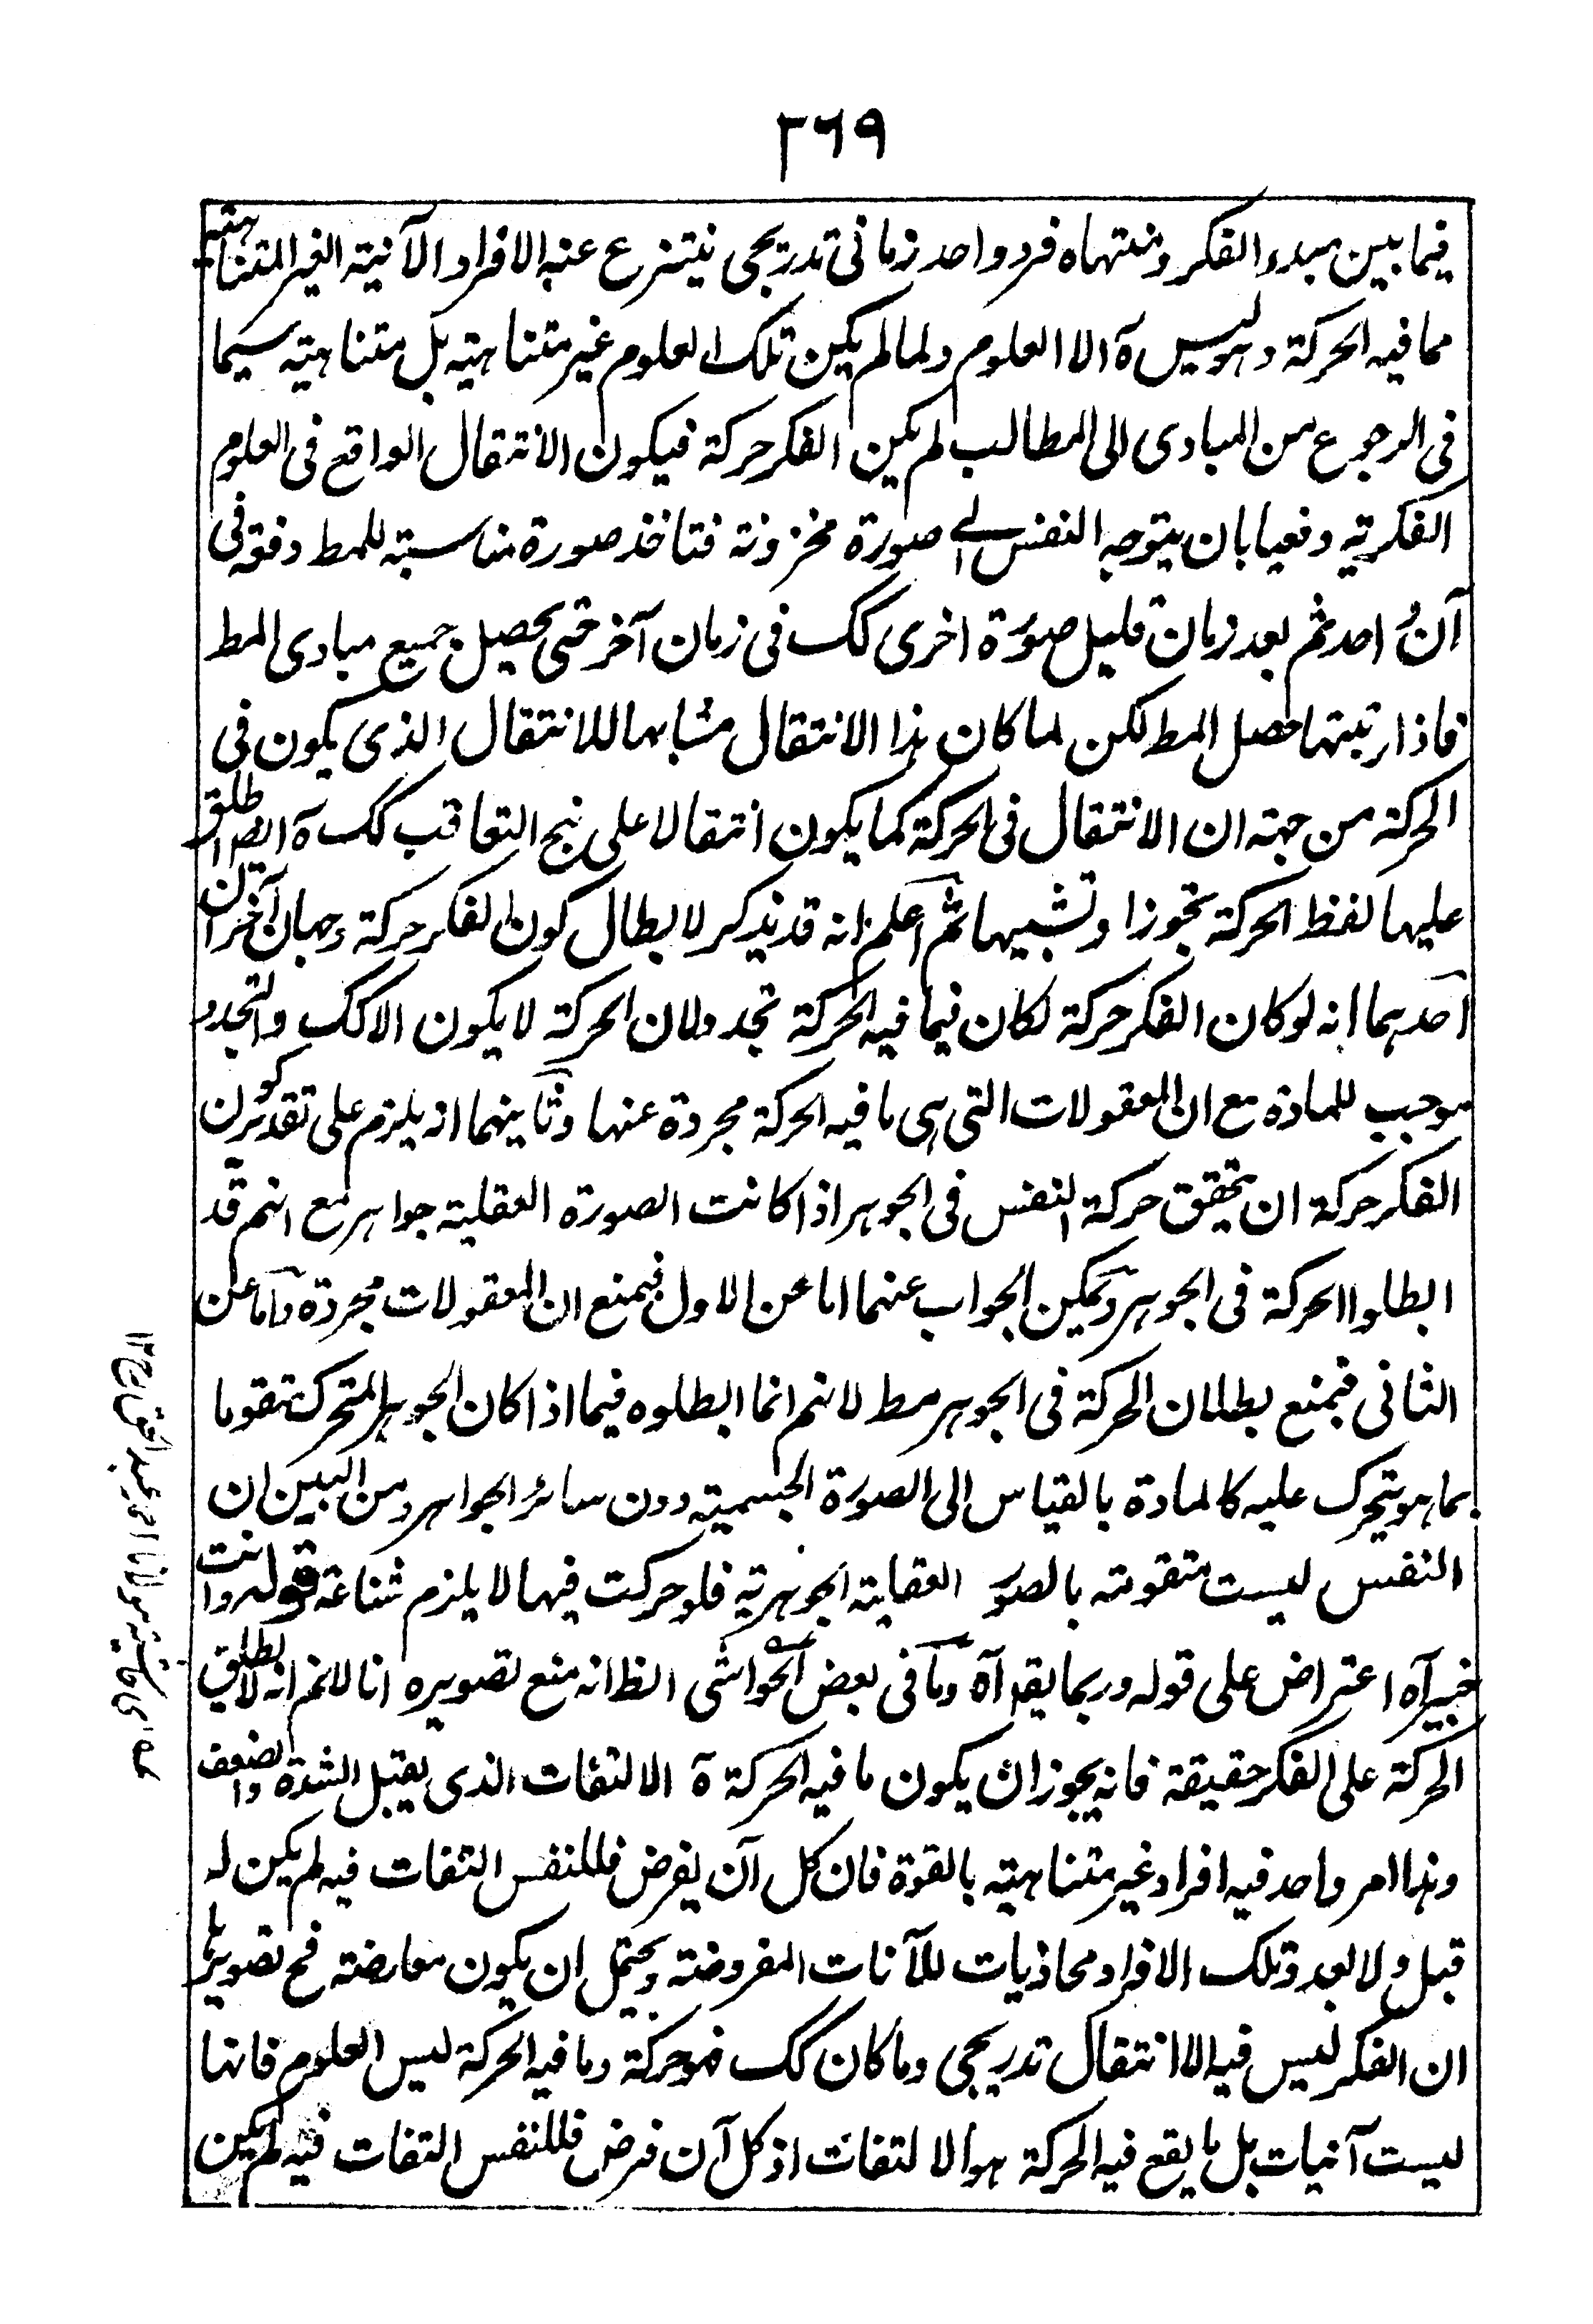 ۲۶۹
فيما بين مبدء الفكر ومنتهاه فرد واحد زمانى تدريجى ينتزع عنه الافراد الآنية الغير المتناهية
مما فيه الحركة وهو ليس ة الا العلوم ولما لم يكن تلك العلوم غير متناهية بل متناهية سيما
فى الرجوع من المبادى الى المطالب لم يكن الفكر حركة فيكون الانتقال الواقع فى العلوم
الفكرية دفعيا بان يتوجه النفس الى صورة مخزونة فتاخذ صورة مناسبة للمط دفعة فى
آن واحد ثم بعد زمان قليل صورة اخرى كك فى زمان آخر حتى يحصل جميع مبادى المط
فاذا رتبتها حصل المط لكن لما كان هذا الانتقال مشابها للانتقال الذى يكون فى
الحركة من جهة ان الانتقال فى الحركة كما يكون انتقالا على نهج التعاقب كك ة ايضا اطلق
عليها لفظ الحركة تجوزا وتشبيها ثم اعلم انه قد يذكر لابطال كون الفكر حركة وجهان آخران
احدهما انه لو كان الفكر حركة لكان فيما فيه الحركة تجدد لان الحركة لا يكون الا كك والتجدد
موجب للمادة مع ان المعقولات التى هى ما فيه الحركة مجردة عنها وثانيهما انه يلزم على تقدير كون
الفكر حركة ان يتحقق حركة النفس فى الجوهر اذا كانت الصورة العقلية جواهر مع انهم قد
ابطلوا الحركة فى الجوهر ويمكن الجواب عنهما اما عن الاول فبمنع ان المعقولات مجردة واما عن
الثانى فبمنع بطلان الحركة فى الجوهر مط لانهم انما ابطلوه فيما اذا كان الجوهر المتحرك متقوما
بما هو يتحرك عليه كالمادة بالقياس الى الصورة الجسمية دون سائر الجواهر ومن البين ان
النفس ليست متقومة بالصور العقلية الجوهرية فلو حركت فيها لا يلزم شناعة قوله وانت
خبير آه اعتراض على قوله وربما يقد آه وما فى بعض الحواشى الظ انه منع تصويره انا لانم انه لا يطلق
الحركة على الفكر حقيقة فانه يجوز ان يكون ما فيه الحركة ة الالتفات الذى يقبل الشدة والضعف
وهذا امر واحد فيه افراد غير متناهية بالقوة فان كل آن يفرض فللنفس التفات فيه لم يكن له
قبل ولا بعد وتلك الافراد محاذيات للآنات المفروضة ويحتمل ان يكون معارضة فح تصويرها
ان الفكر ليس فيه الا انتقال تدريجى وما كان كك فهو حركة وما فيه الحركة ليس العلوم فانها
ليست آنيات بل ما يقع فيه الحركة هو الالتفات اذ كل آن فرض فللنفس التفات فيه لم يكن